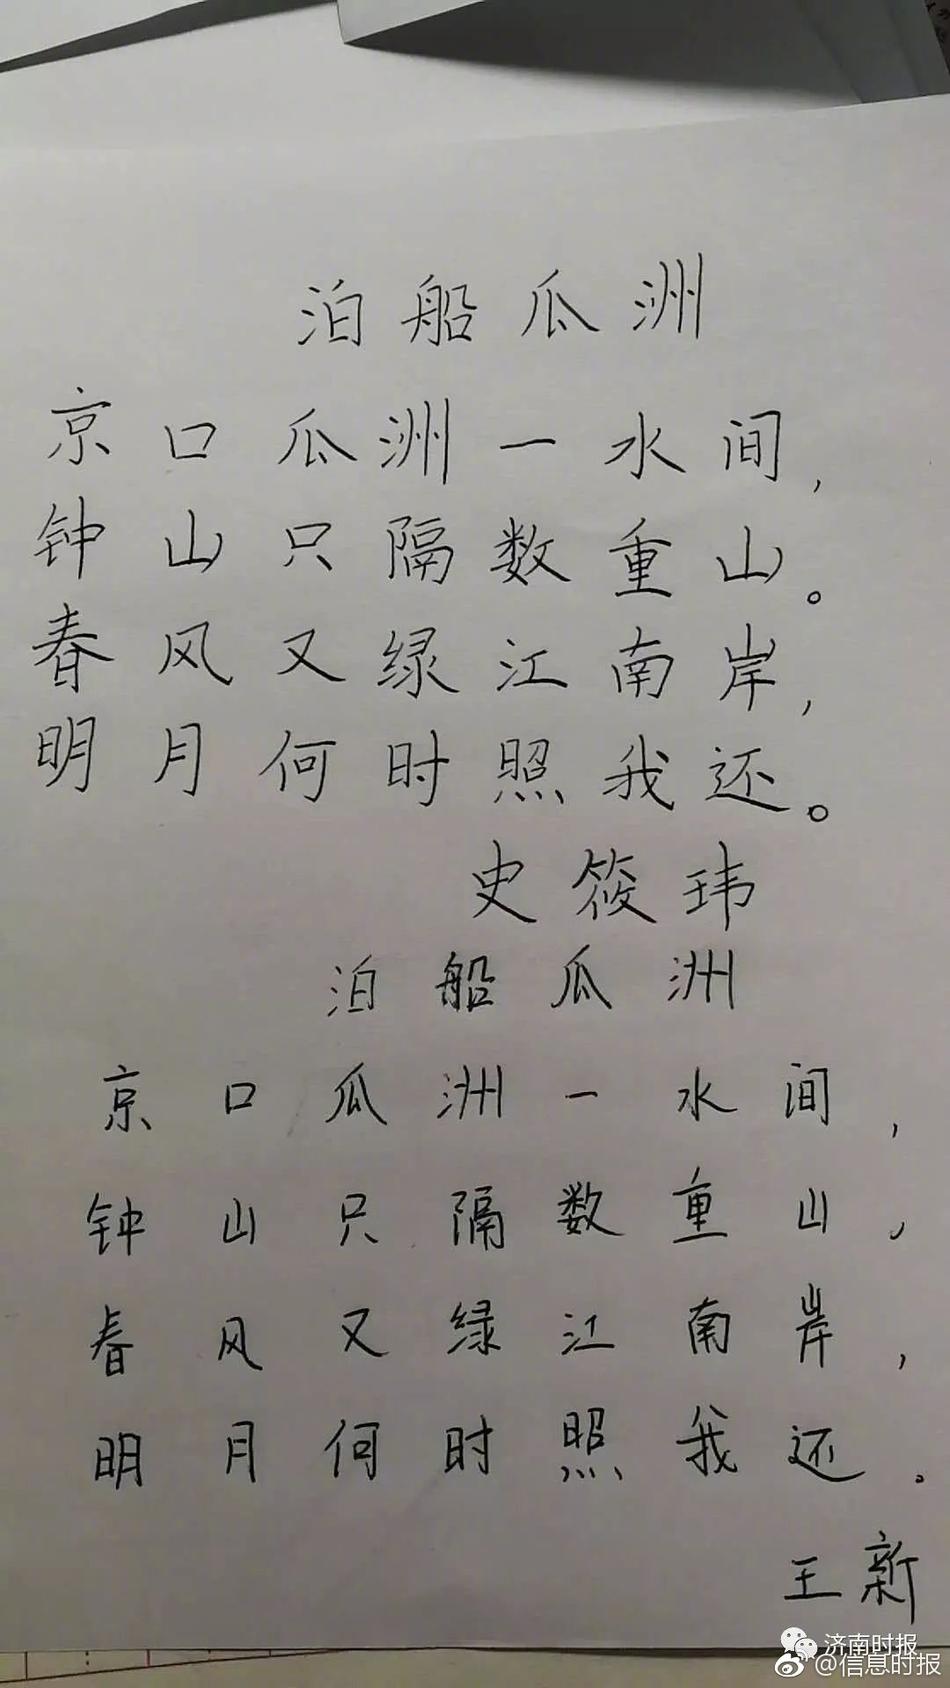 泊船瓜洲
京口瓜洲一水间，
钟山只隔数重山。
春风又绿江南岸，
明月何时照我还。
史筱玮
泊船瓜洲
京口瓜洲一水间，
钟山只隔数重山，
春风又绿江南岸，
明月何时照我还。
王新
济南时报
@信息时报